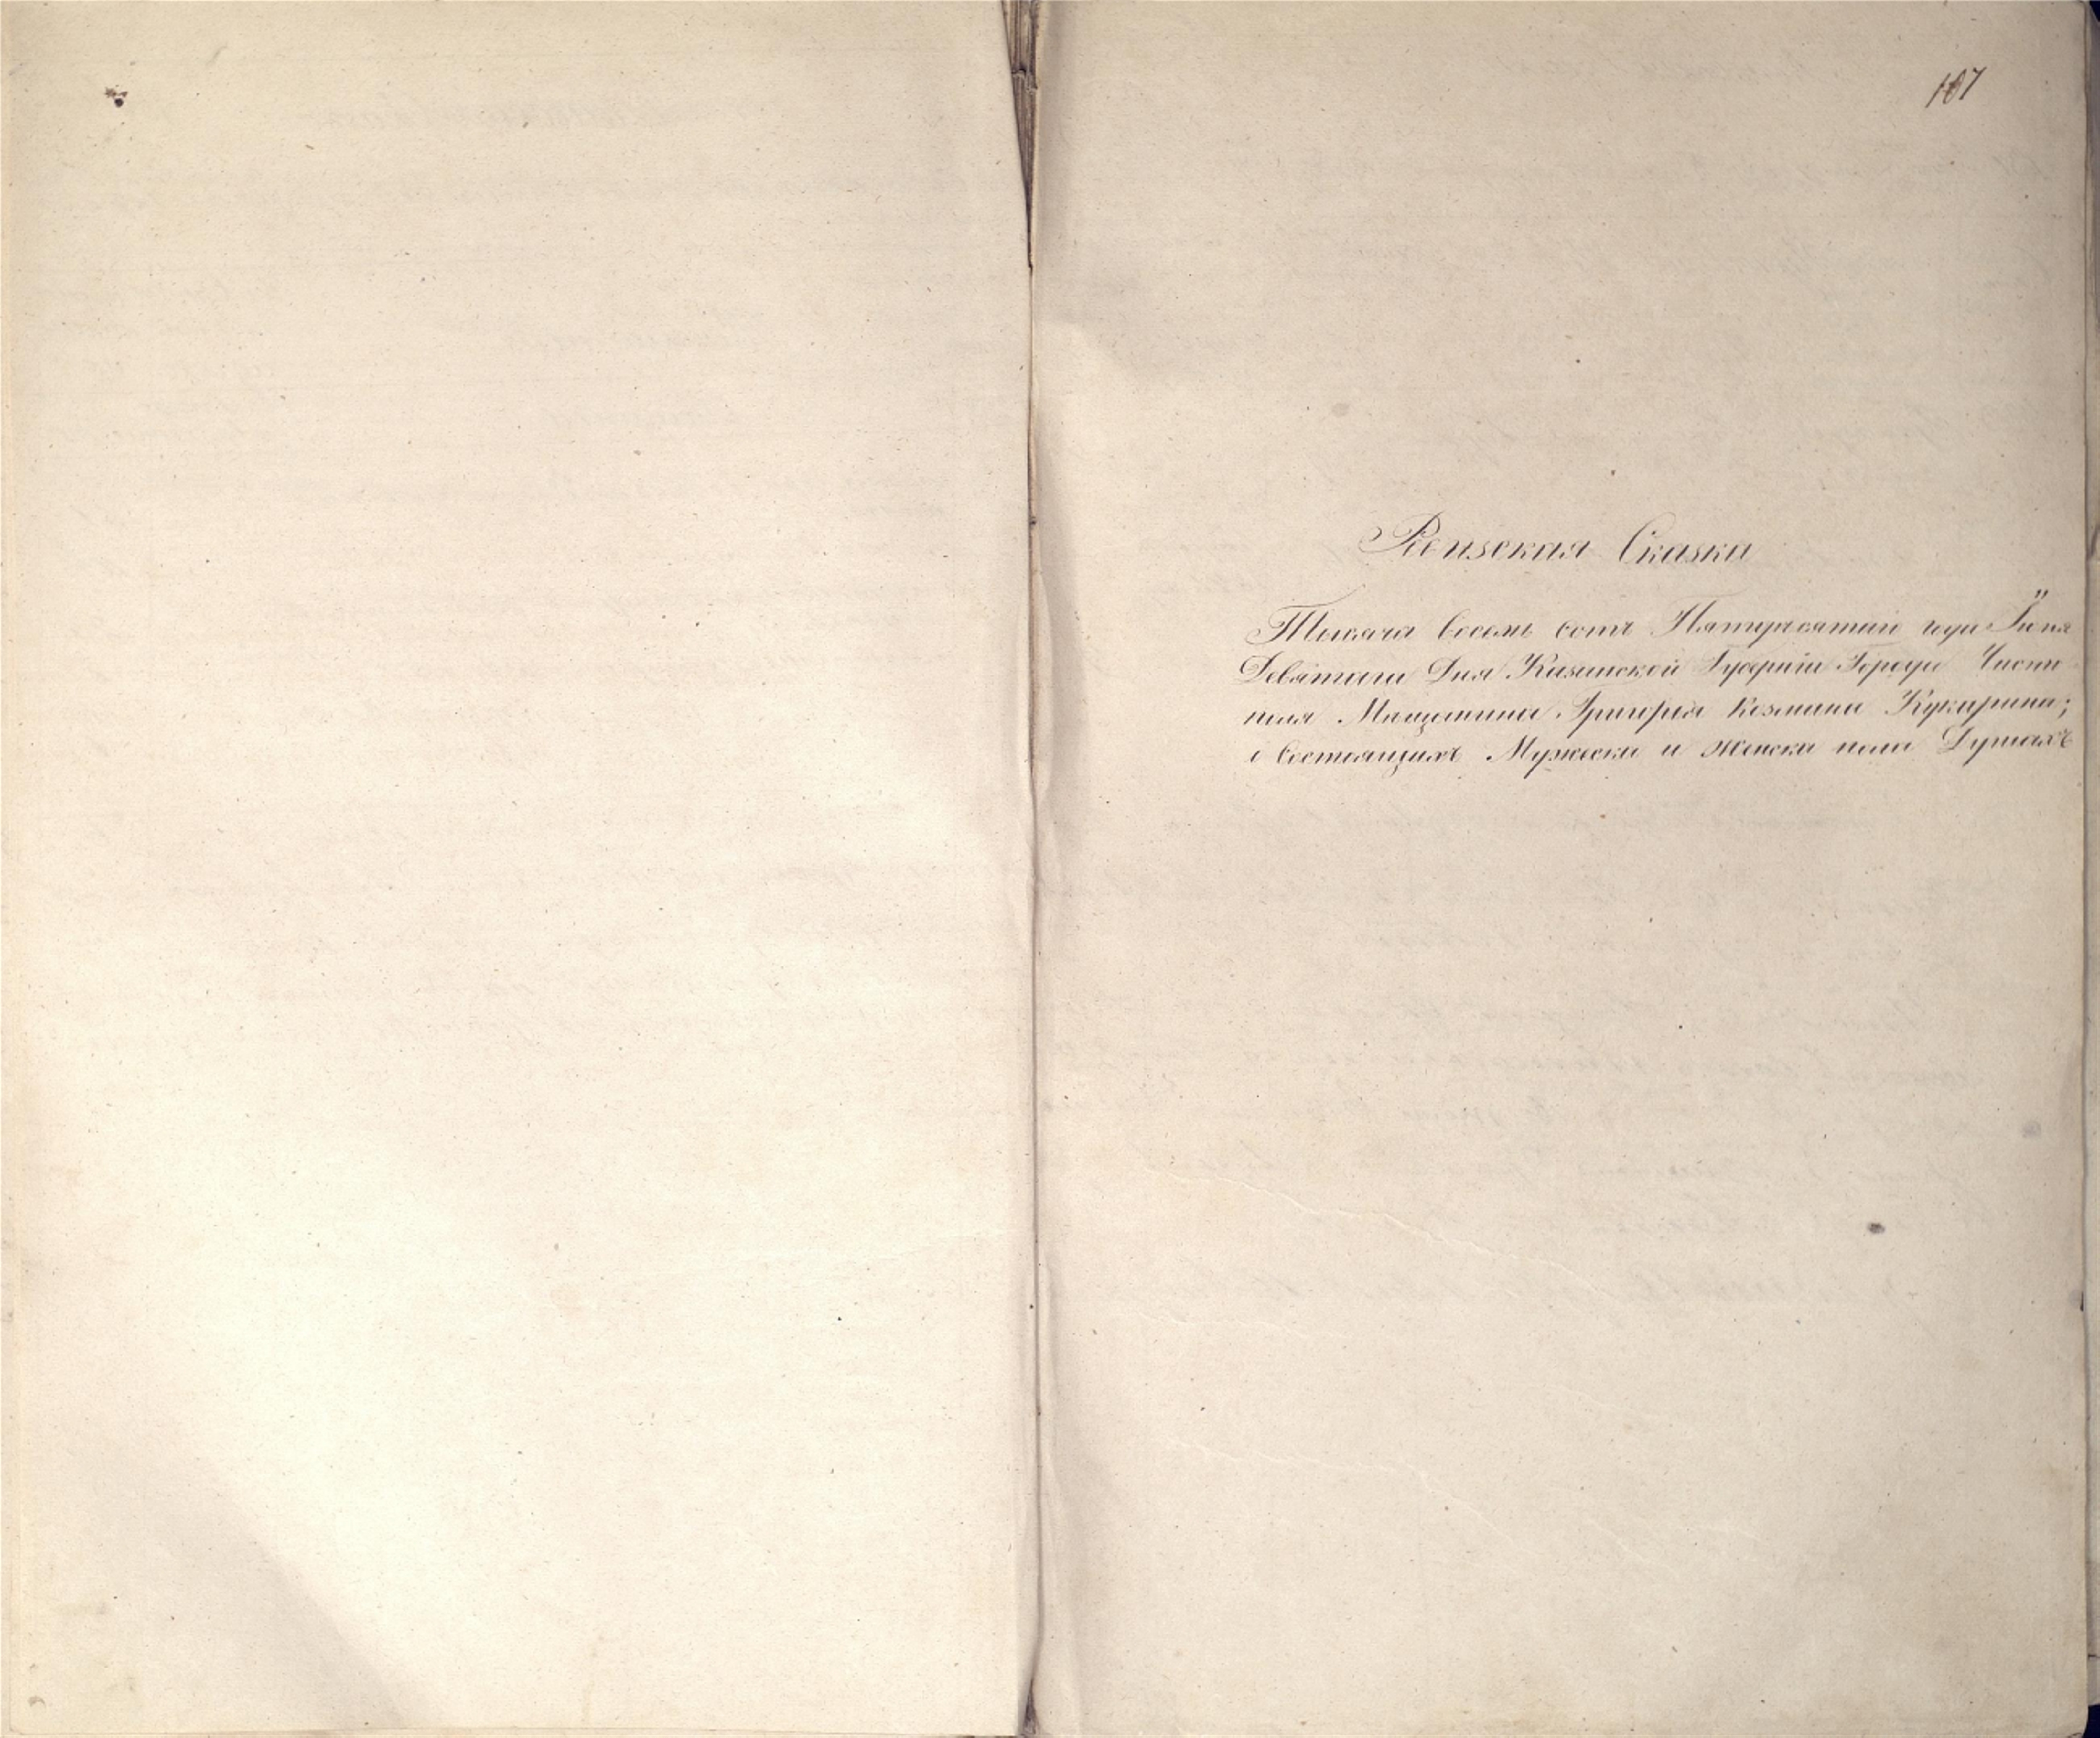 107
Ревизская Сказка
Тысяча восемь сотъ Пятидесятаго года Іюня
Девятаго Дня Казанской Губерніи Города Чисто
поля Мещанина Григорья Козмина Кукарина;
о состоящихъ Мужеска и женска пола Душахъ